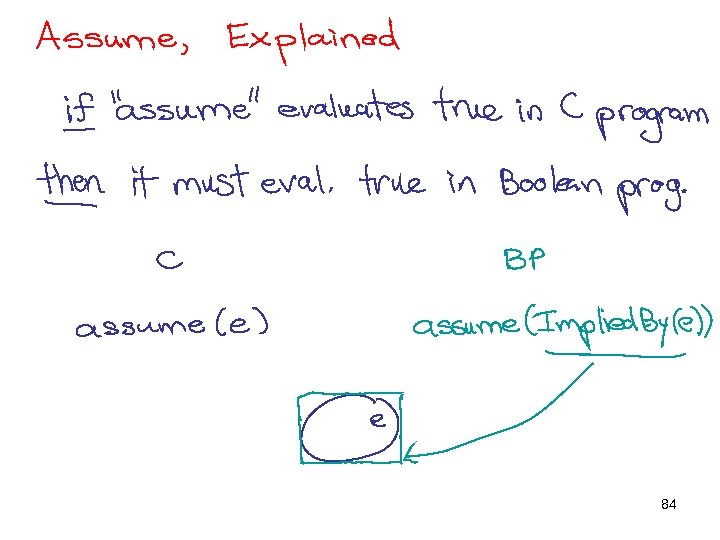 Assume, Explained
if "assume" evaluates true in C program
then it must eval. true in Boolean prog.
C BP
assume (e) assume (ImpliedBy(e))
e
84